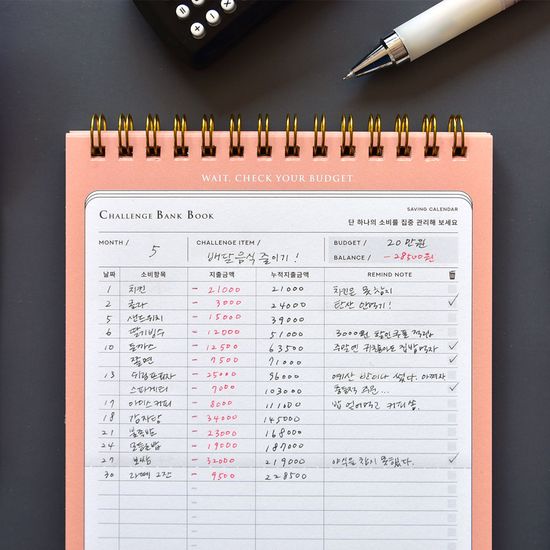 WAIT, CHECK YOUR BUDGET.
CHALLENGE BANK BOOK
SAVING CALENDAR
단 하나의 소비를 집중 관리해 보세요
MONTH / 5 CHALLENGE ITEM / 배달음식 줄이기! BUDGET / 20만원
BALANCE / -28500원
날짜 소비항목 지출금액 누적지출금액 REMIND NOTE
1 치킨 - 21000 21000 치킨은 못참지
2 콜라 - 3000 24000 탄산 안먹기!
5 샌드위치 - 15000 39000
6 딸기빙수 - 12000 51000 3000원 할인쿠폰
10 돈까스 - 12500 63500 주말엔
쫄면 - 7500 71000
13 - 25000 96000 예산 반이나 썼다.
스파게티 - 7000 103000
17 아이스커피 - 8000 111000 밥 커피
18 감자탕 - 34000 145000
21 - 23000 168000
24 - 19000 187000
27 보쌈 - 32000 219000 야식을 참지 못했다.
30 라떼 2잔 - 9500 228500